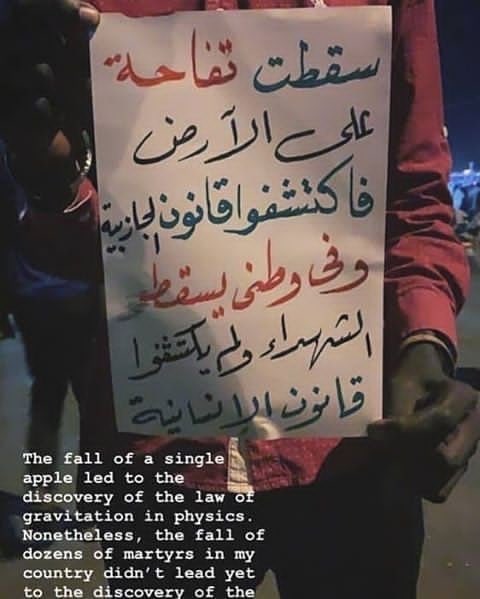 سقطت تفاحة
على الآرض
فاكتشفوا قانون الجازبية
وفى وطنى يسقط
الشهداء ولم يكتشفوا
قانون الإنسانية
The fall of a single
apple led to the
discovery of the law of
gravitation in physics.
Nonetheless, the fall of
dozens of martyrs in my
country didn't lead yet
to the discovery of the